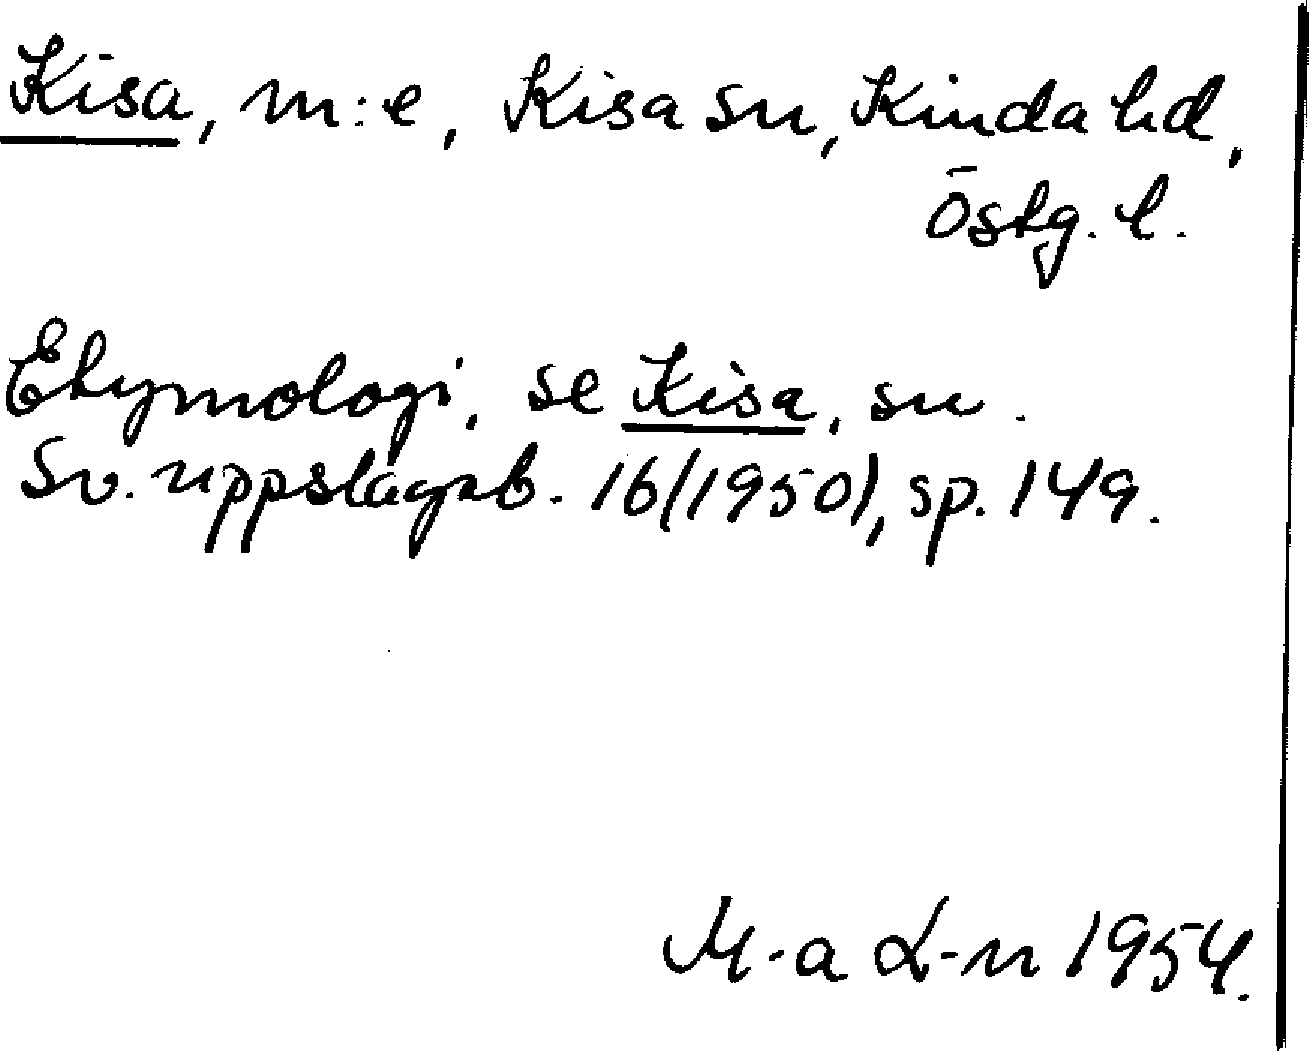 Kisa, m:e, Kisa sn, Kinda hd,
Östg. l.
Etymologi, se Kisa, sn.
Sv. uppslagsb. 16(1950), sp. 149.
M-a L-n 1954.